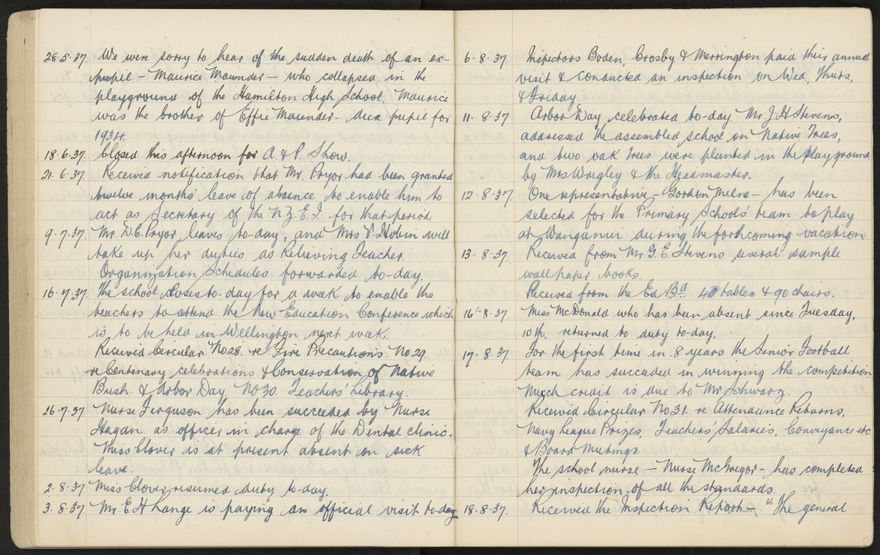 28.5.37. We were sorry to hear of the sudden death of an ex-
pupil – Maurice Maunder – who collapsed in the
playground of the Hamilton High School. Maurice
was the brother of Effie Maunder. Dux pupil for
1934.
18.6.37. Closed this afternoon for A & P. Show.
21.6.37 Received notification that Mr. Pryor had been granted
twelve months' leave of absence to enable him to
act as Secretary of the N.Z.E.I. for that period.
9.7.37. Mr. D.C. Pryor leaves to-day, and Mrs V. will
take up her duties as Relieving Teacher.
Organization Schedules forwarded to-day.
16.7.37. The school closes to-day for a week to enable the
teachers to attend the New Education Conference which
is to be held in Wellington next week.
Received Circular No 28. re Fire Precautions. No 29.
re Centenary celebrations & Conservation of Native
Bush. & Arbor Day, No 30. Teachers' Library.
26.7.37 Nurse Ferguson has been succeeded by Nurse
Hagan as officer in charge of the Dental Clinic.
Miss Clover is at present absent on sick
leave.
2.8.37. Miss Clover resumed duty to-day.
3.8.37. Mr. E H Lange is paying an official visit to-day
6.8.37 Inspectors Boden, Crosby & Merrington paid their annual
visit & conducted an inspection on Wed, Thurs,
& Friday.
11.8.37 Arbor Day celebrated to-day. Mr. J. H Stevens,
addressed the assembled school on Native Trees,
and two oak trees were planted in the playground
by Mrs Wrigley & the Headmaster.
12.8.37 One representative – Gordon Milne – has been
selected for the Primary Schools' team to play
at Wanganui during the forthcoming vacation
13.8.37 Received from Mr. G. E. Stevens several sample
wall paper books.
Received from the Ed Bd. 45 tables & 90 chairs.
16.8.37 Miss McDonald who has been absent since Tuesday,
10th, returned to duty to-day.
17.8.37 For the first time in 8 years the Senior Football
team has succeeded in winning the competition
Much credit is due to Mr Schwarz.
Received Circular No 31. re Attendance Returns,
Navy League Prizes, Teachers' Salaries, Conveyance etc
& Board Meetings.
The school nurse – Nurse McGregor – has completed
her inspection of all the standards.
18.8.37. Received the Inspection Report – "The general